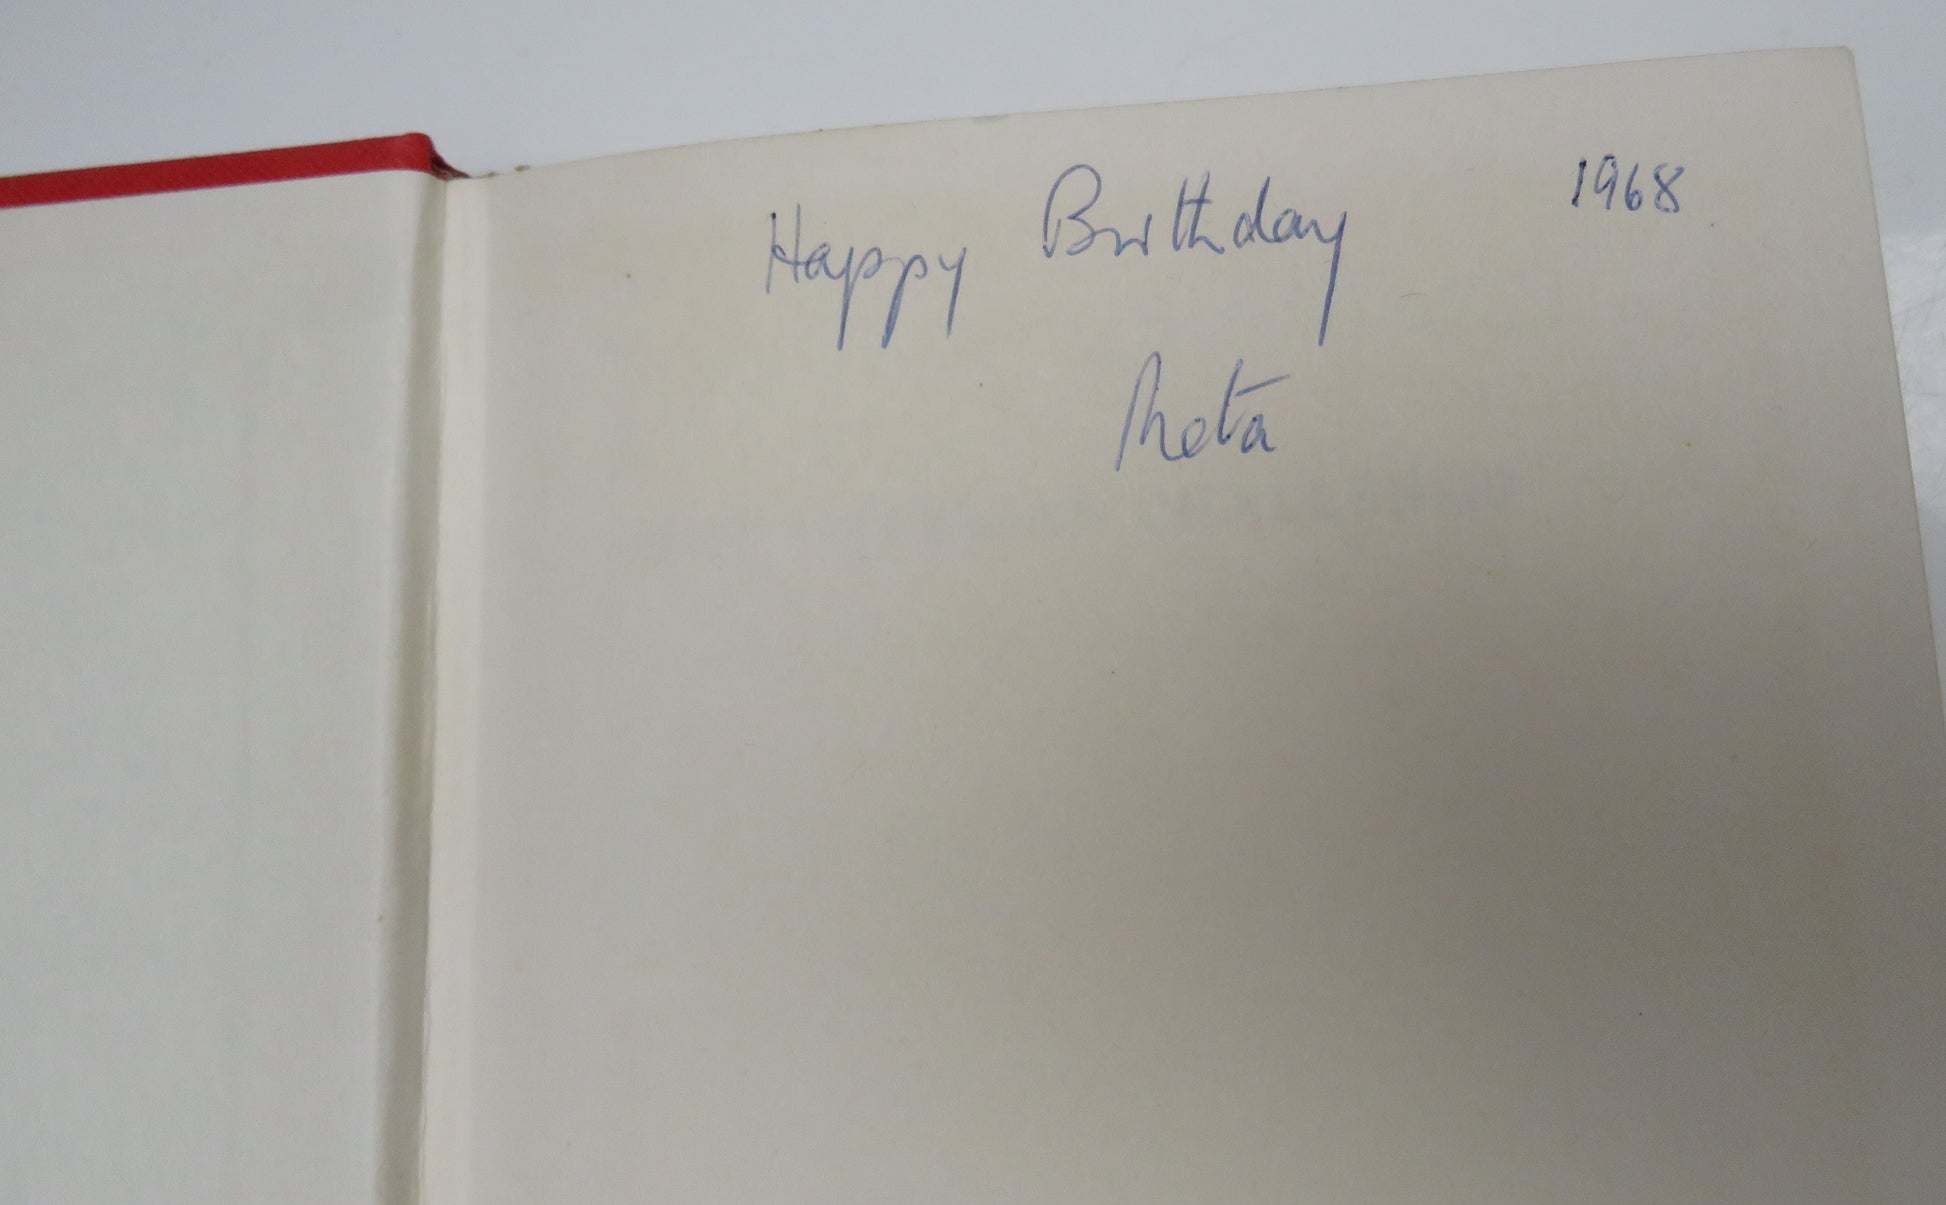 Happy Birthday 1968
Meta